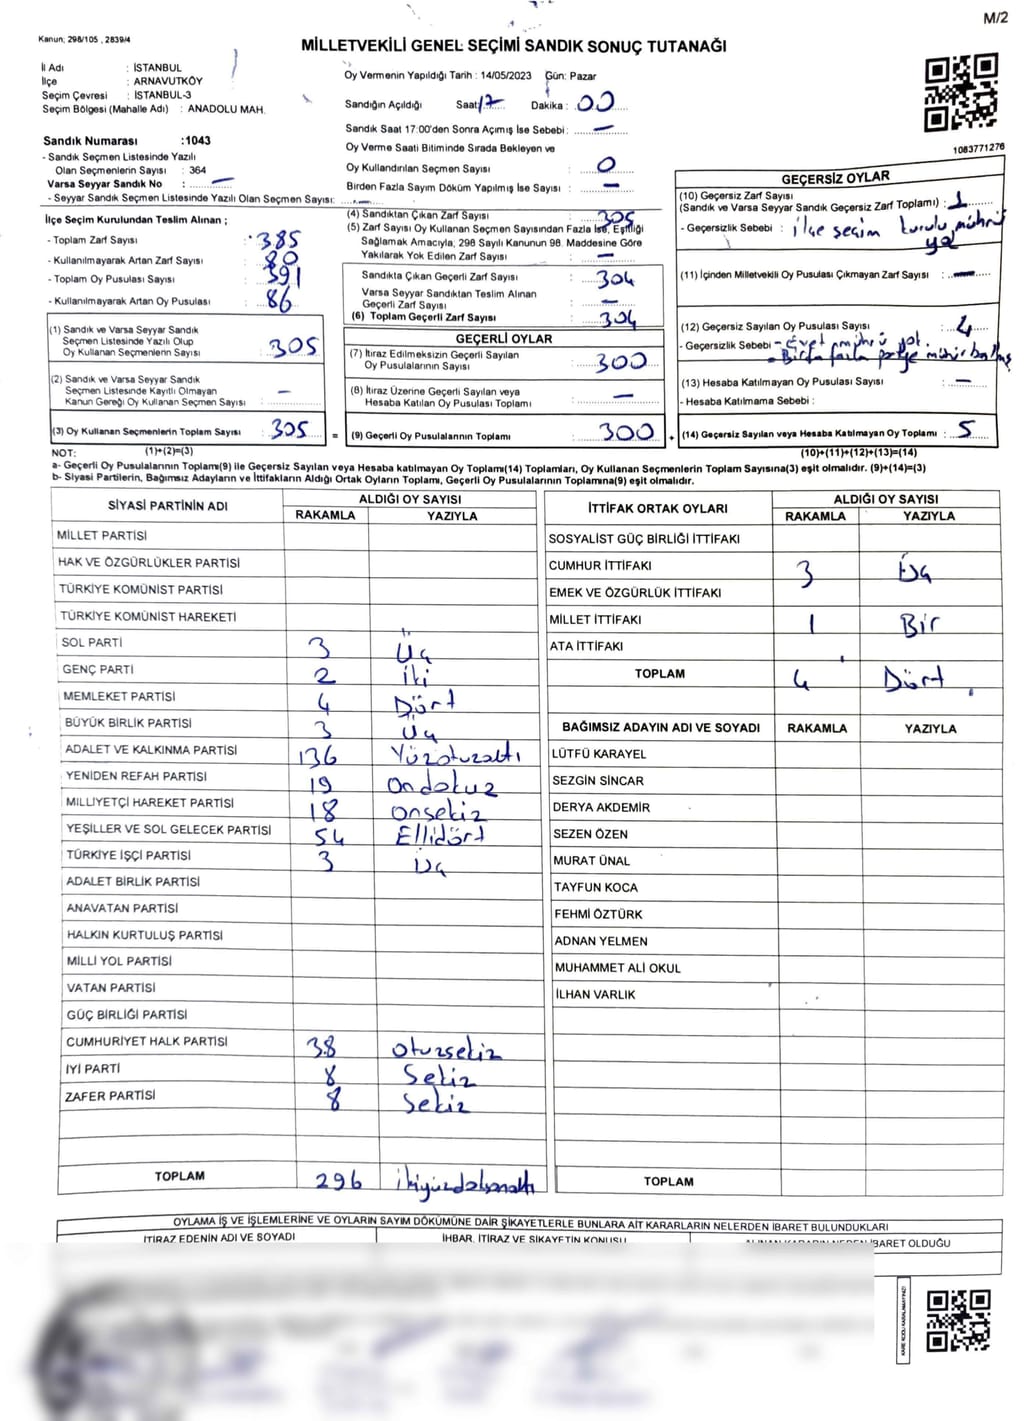 M/2
Kanun; 298/105 , 2839/4
MİLLETVEKİLİ GENEL SEÇİMİ SANDIK SONUÇ TUTANAĞI
İl Adı : İSTANBUL
İlçe : ARNAVUTKÖY
Seçim Çevresi : İSTANBUL-3
Seçim Bölgesi (Mahalle Adı) : ANADOLU MAH.
Sandık Numarası :1043
- Sandık Seçmen Listesinde Yazılı
Olan Seçmenlerin Sayısı : 364
Varsa Seyyar Sandık No : —
- Seyyar Sandık Seçmen Listesinde Yazılı Olan Seçmen Sayısı: —
Oy Vermenin Yapıldığı Tarih : 14/05/2023 Gün: Pazar
Sandığın Açıldığı Saat: 17 Dakika : 00
Sandık Saat 17:00'den Sonra Açımış İse Sebebi : —
Oy Verme Saati Bitiminde Sırada Bekleyen ve
Oy Kullandırılan Seçmen Sayısı : 0
Birden Fazla Sayım Döküm Yapılmış İse Sayısı : —
1083771276
İlçe Seçim Kurulundan Teslim Alınan ;
- Toplam Zarf Sayısı : 385
- Kullanılmayarak Artan Zarf Sayısı : 80
- Toplam Oy Pusulası : 391
- Kullanılmayarak Artan Oy Pusulası : 86
(1) Sandık ve Varsa Seyyar Sandık
Seçmen Listesinde Yazılı Olup
Oy Kullanan Seçmenlerin Sayısı : 305
(2) Sandık ve Varsa Seyyar Sandık
Seçmen Listesinde Kayıtlı Olmayan
Kanun Gereği Oy Kullanan Seçmen Sayısı : —
(3) Oy Kullanan Seçmenlerin Toplam Sayısı : 305
(4) Sandıktan Çıkan Zarf Sayısı : 305
(5) Zarf Sayısı Oy Kullanan Seçmen Sayısından Fazla İse, Eşitliği
Sağlamak Amacıyla; 298 Sayılı Kanunun 98. Maddesine Göre
Yakılarak Yok Edilen Zarf Sayısı : —
Sandıkta Çıkan Geçerli Zarf Sayısı : 304
Varsa Seyyar Sandıktan Teslim Alınan
Geçerli Zarf Sayısı : —
(6) Toplam Geçerli Zarf Sayısı : 304
GEÇERLİ OYLAR
(7) İtiraz Edilmeksizin Geçerli Sayılan
Oy Pusulalarının Sayısı : 300
(8) İtiraz Üzerine Geçerli Sayılan veya
Hesaba Katılan Oy Pusulası Toplamı : —
= (9) Geçerli Oy Pusulalarının Toplamı : 300 +
GEÇERSİZ OYLAR
(10) Geçersiz Zarf Sayısı
(Sandık ve Varsa Seyyar Sandık Geçersiz Zarf Toplamı) : 1
- Geçersizlik Sebebi : ilçe seçim kurulu mührü
yok
(11) İçinden Milletvekili Oy Pusulası Çıkmayan Zarf Sayısı : —
(12) Geçersiz Sayılan Oy Pusulası Sayısı : 4
- Geçersizlik Sebebi - Evet mührü yok.
- Birden fazla partiye mühür
(13) Hesaba Katılmayan Oy Pusulası Sayısı : —
- Hesaba Katılmama Sebebi :
(14) Geçersiz Sayılan veya Hesaba Katılmayan Oy Toplamı : 5
NOT: (1)+(2)=(3) (10)+(11)+(12)+(13)=(14)
a- Geçerli Oy Pusulalarının Toplamı(9) ile Geçersiz Sayılan veya Hesaba katılmayan Oy Toplamı(14) Toplamları, Oy Kullanan Seçmenlerin Toplam Sayısına(3) eşit olmalıdır. (9)+(14)=(3)
b- Siyasi Partilerin, Bağımsız Adayların ve İttifakların Aldığı Ortak Oyların Toplamı, Geçerli Oy Pusulalarının Toplamına(9) eşit olmalıdır.
SİYASİ PARTİNİN ADI ALDIĞI OY SAYISI
RAKAMLA YAZIYLA
MİLLET PARTİSİ
HAK VE ÖZGÜRLÜKLER PARTİSİ
TÜRKİYE KOMÜNİST PARTİSİ
TÜRKİYE KOMÜNİST HAREKETİ
SOL PARTİ 3 Üç
GENÇ PARTİ 2 İki
MEMLEKET PARTİSİ 4 Dört
BÜYÜK BİRLİK PARTİSİ 3 Üç
ADALET VE KALKINMA PARTİSİ 136 Yüzotuzaltı
YENİDEN REFAH PARTİSİ 19 Ondokuz
MİLLİYETÇİ HAREKET PARTİSİ 18 Onsekiz
YEŞİLLER VE SOL GELECEK PARTİSİ 54 Ellidört
TÜRKİYE İŞÇİ PARTİSİ 3 Üç
ADALET BİRLİK PARTİSİ
ANAVATAN PARTİSİ
HALKIN KURTULUŞ PARTİSİ
MİLLİ YOL PARTİSİ
VATAN PARTİSİ
GÜÇ BİRLİĞİ PARTİSİ
CUMHURİYET HALK PARTİSİ 38 Otuzsekiz
İYİ PARTİ 8 Sekiz
ZAFER PARTİSİ 8 Sekiz
TOPLAM 296 ikiyüzdoksanaltı
İTTİFAK ORTAK OYLARI ALDIĞI OY SAYISI
RAKAMLA YAZIYLA
SOSYALİST GÜÇ BİRLİĞİ İTTİFAKI
CUMHUR İTTİFAKI 3 Üç
EMEK VE ÖZGÜRLÜK İTTİFAKI
MİLLET İTTİFAKI 1 Bir
ATA İTTİFAKI
TOPLAM 4 Dört
BAĞIMSIZ ADAYIN ADI VE SOYADI RAKAMLA YAZIYLA
LÜTFÜ KARAYEL
SEZGİN SİNCAR
DERYA AKDEMİR
SEZEN ÖZEN
MURAT ÜNAL
TAYFUN KOCA
FEHMİ ÖZTÜRK
ADNAN YELMEN
MUHAMMET ALİ OKUL
İLHAN VARLIK
TOPLAM
OYLAMA İŞ VE İŞLEMLERİNE VE OYLARIN SAYIM DÖKÜMÜNE DAİR ŞİKAYETLERLE BUNLARA AİT KARARLARIN NELERDEN İBARET BULUNDUKLARI
İTİRAZ EDENİN ADI VE SOYADI İHBAR, İTİRAZ VE ŞİKAYETİN KONUSU ALINAN KARARIN NEDEN İBARET OLDUĞU
KARE KODU KARALAMAYINIZ!